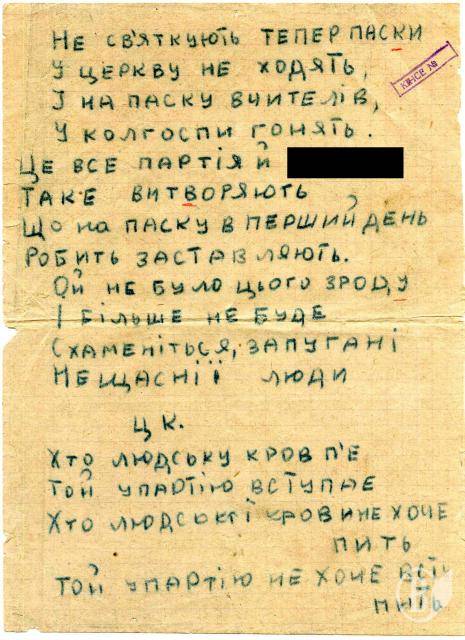 НЕ СВ'ЯТКУЮТЬ ТЕПЕР ПАСКИ
У ЦЕРКВУ НЕ ХОДЯТЬ,
І НА ПАСКУ ВЧИТЕЛІВ,
У КОЛГОСПИ ГОНЯТЬ.
ЦЕ ВСЕ ПАРТІЯ Й
ТАКЕ ВИТВОРЯЮТЬ
ЩО НА ПАСКУ В ПЕРШИЙ ДЕНЬ
РОБИТЬ ЗАСТАВЛЯЮТЬ.
ОЙ НЕ БУЛО ЦЬОГО ЗРОДУ
І БІЛЬШЕ НЕ БУДЕ
СХАМЕНІТЬСЯ, ЗАПУГАНІ
НЕЩАСНІЇ ЛЮДИ
ЦК.
ХТО ЛЮДСЬКУ КРОВ П'Є
ТОЙ УПАРТІЮ ВСТУПАЄ
ХТО ЛЮДСЬКОЇ КРОВИ НЕ ХОЧЕ
ПИТЬ
ТОЙ УПАРТІЮ НЕ ХОЧЕ